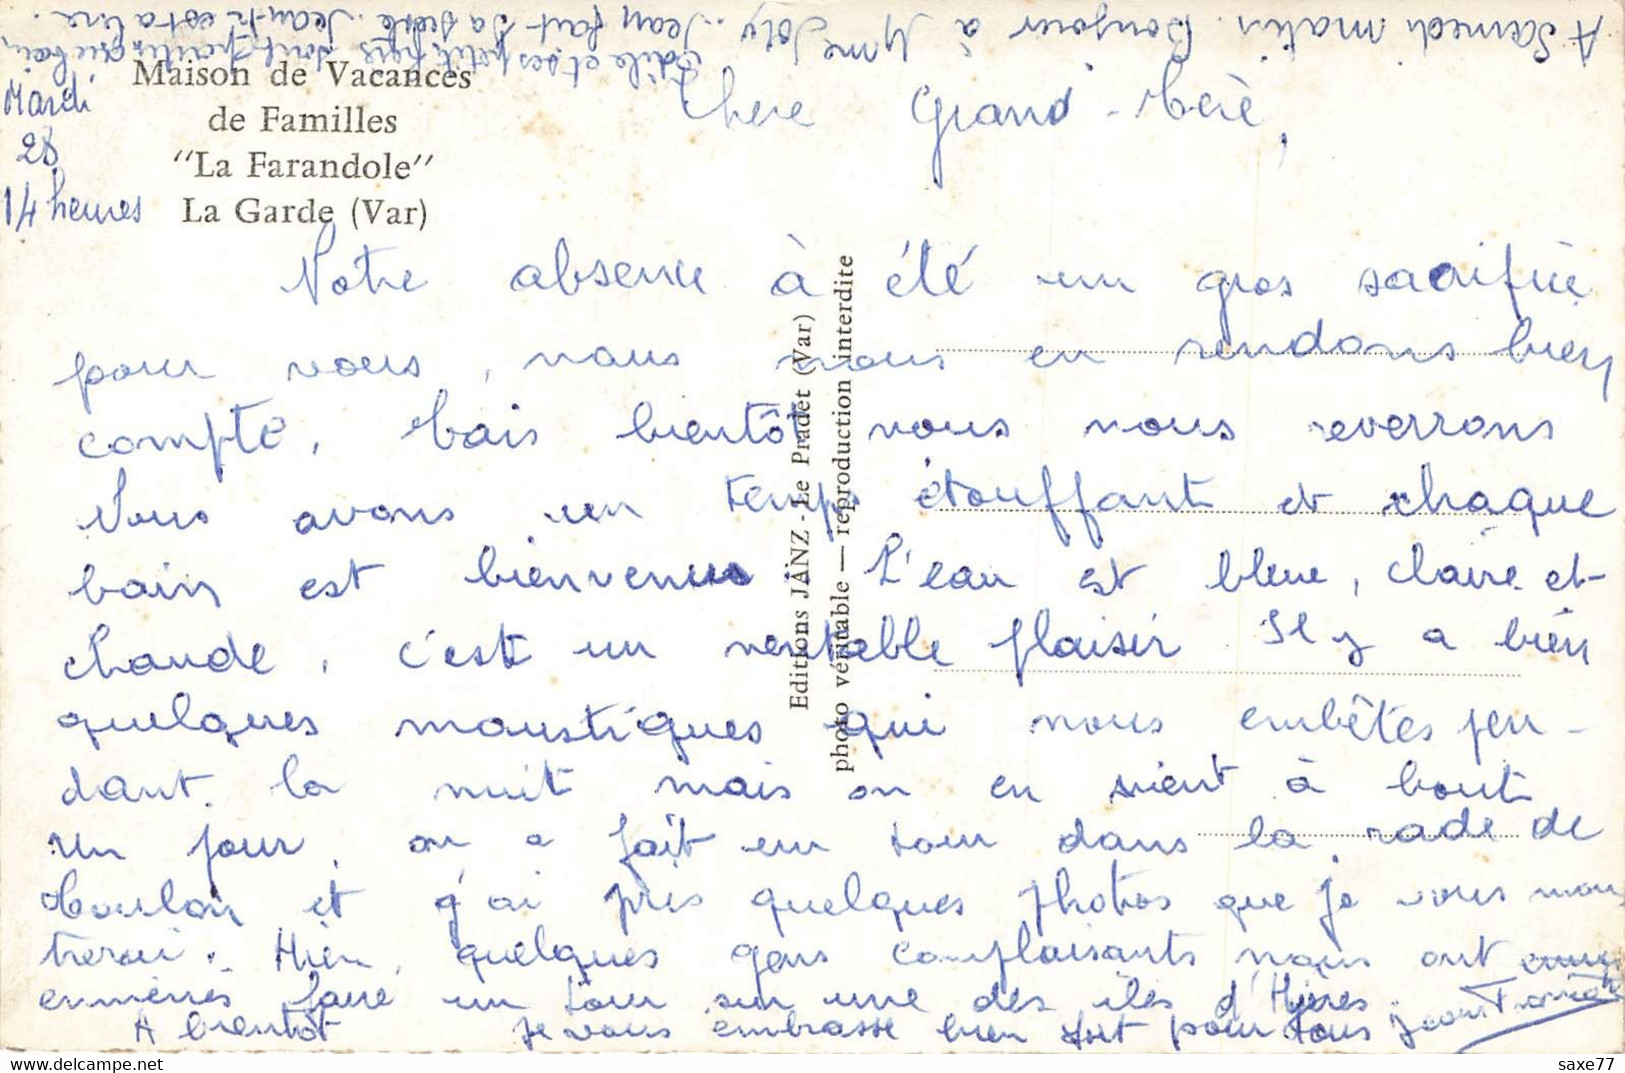 A Samedi matin. Bonjour à Mme Joly. Jean fait sa sieste. Jean-F. est
Odile et ses petits sont partis au bain
Maison de Vacances
de Familles
"La Farandole"
La Garde (Var)
Mardi
28
14 heures
Chere Grand-Mère,
Votre absence à été un gros sacrifice
pour vous, nous nous en rendons bien
compte. Mais bientôt nous nous reverrons
Nous avons un temps étouffant et chaque
bain est bienvenu. L'eau est bleue, claire et
chaude, c'est un veritable plaisir. Il y a bien
quelques moustiques qui nous embêtes pen-
dant la nuit mais on en vient à bout
Un jour, on a fait un tour dans la rade de
Toulon et j'ai pris quelques photos que je vous mon
trerai. Hier, quelques gens complaisants nous ont
emmenés faire un tour sur une des îles d'Hyères
A bientôt Je vous embrasse bien fort pour tous Jean François
Editions JANZ - Le Pradet (Var)
photo véritable — reproduction interdite
saxe77